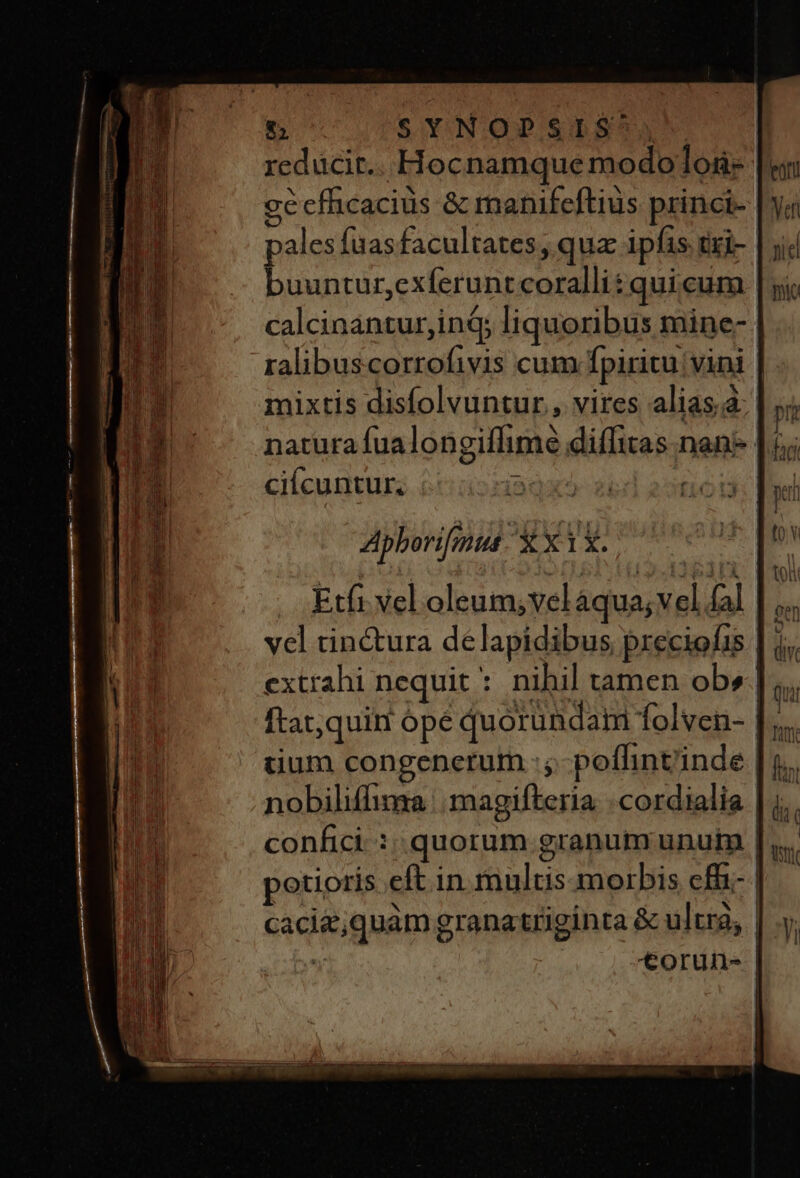 SYNOPSIS
reducit. Hocnamque modo lon-
gè efficaciùs & manifeſtiùs princi-
pales ſuas facultates, quæ ipſis tri-
buuntur, exſerunt coralli: qui cum
calcinantur, inq; liquoribus mine-
ralibus corroſivis cum ſpiritu vini
mixtis disſolvuntur, vires alias, à
natura ſua longiſſimè diſſitas nan-
ciſcuntur.
Aphoriſmus XXIX.
Etſi vel oleum, vel aqua, vel ſal
vel tinctura de lapidibus precioſis
extrahi nequit: nihil tamen ob-
ſtat, quin ope quorundam ſolven-
tium congenerum; poſſint inde
nobiliſſima magiſteria cordialia
confici: quorum granum unum
potioris eſt in multis morbis effi-
caciæ, quàm grana triginta & ultrà,
eorun-